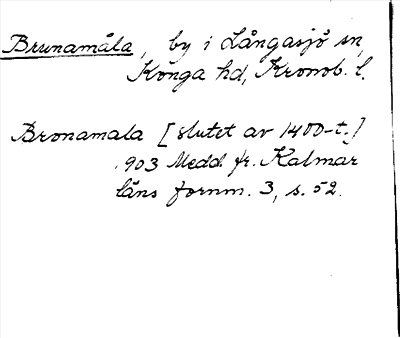 Brunamåla, by i Långasjö sn,
Konga hd, Kronob. l.
Bronamala [slutet av 1400-t.]
903 Medd. fr. Kalmar
läns fornm. 3, s. 52.